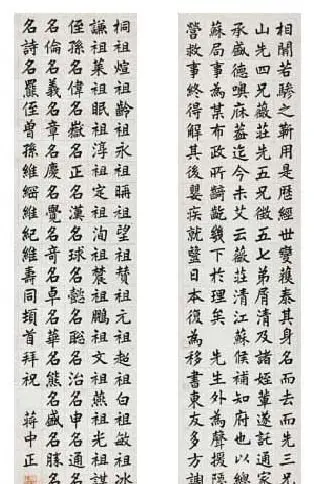 相關若驂之靳用是歷經世變獲泰其身名而去而先三兄
山先四兄薇莊先五兄徵五七弟屑清及諸姪輩遂託通家
承盛德噢庥益迄今未艾云薇莊清江蘇候補知府也以總
蘇局事為某布政所齮齕幾下於理矣 先生外為聲援隱
營救事終得解其後嬰疾就醫日本復為移書東友多方調
桐祖煊祖齡祖永祖暘祖望祖贊祖元祖超祖白祖敏祖冰
謙祖萊祖眠祖淳祖定祖洵祖麓祖鵬祖文祖燕祖光祖謀
姪孫名偉名嶽名正名漢名球名懿名聰名治名申名通名
名義名章名慶名覺名奇名卓名華名熊名盛名威名勝名
名詩名羅姪曾孫維綱維紀維壽同頓首拜祝 蔣中正